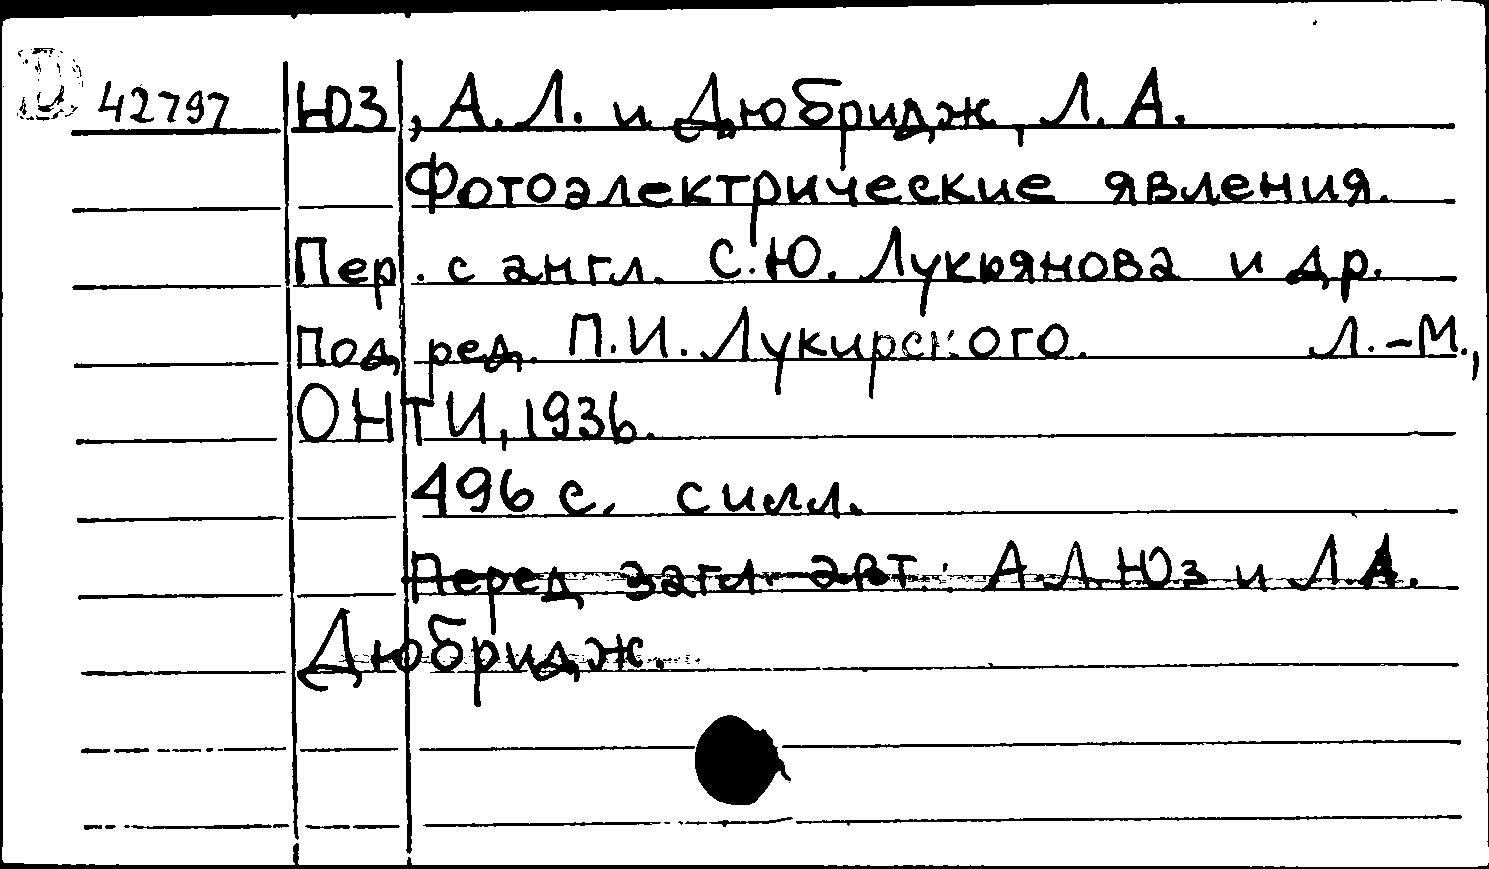 D 42797 Юз, А. Л. и Дюбридж, Л. А.
Фотоэлектрические явления.
Пер. с англ. С.Ю. Лукьянова и др.
Под ред. П.И. Лукирского. Л.-М.,
ОНТИ, 1936.
496 с. с илл.
Перед загл. авт.: А.Л. Юз и Л.А.
Дюбридж.